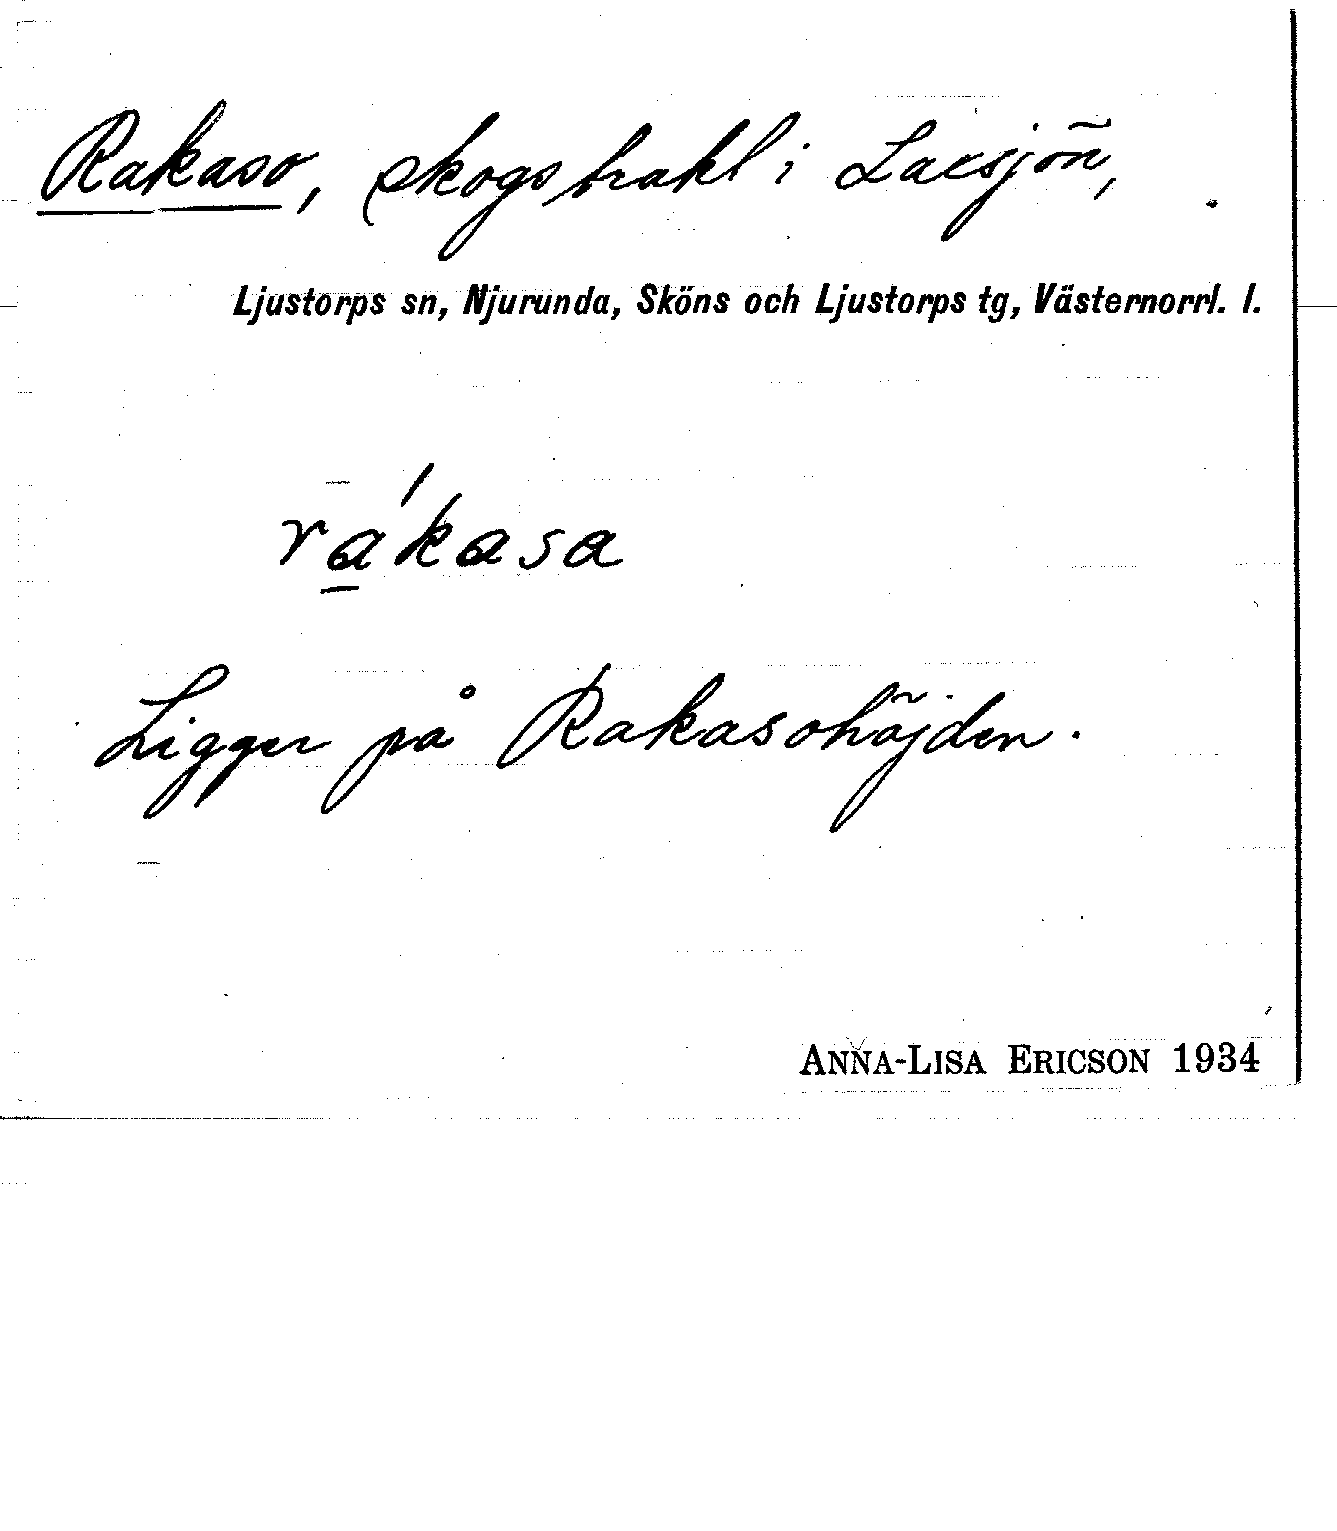 Rakaso, skogstrakt i Laxsjön,
Ljustorps sn, Njurunda, Sköns och Ljustorps tg, Västernorrl. l.
rákasa
Ligger på Rakasohöjden.
ANNA-LISA ERICSON 1934